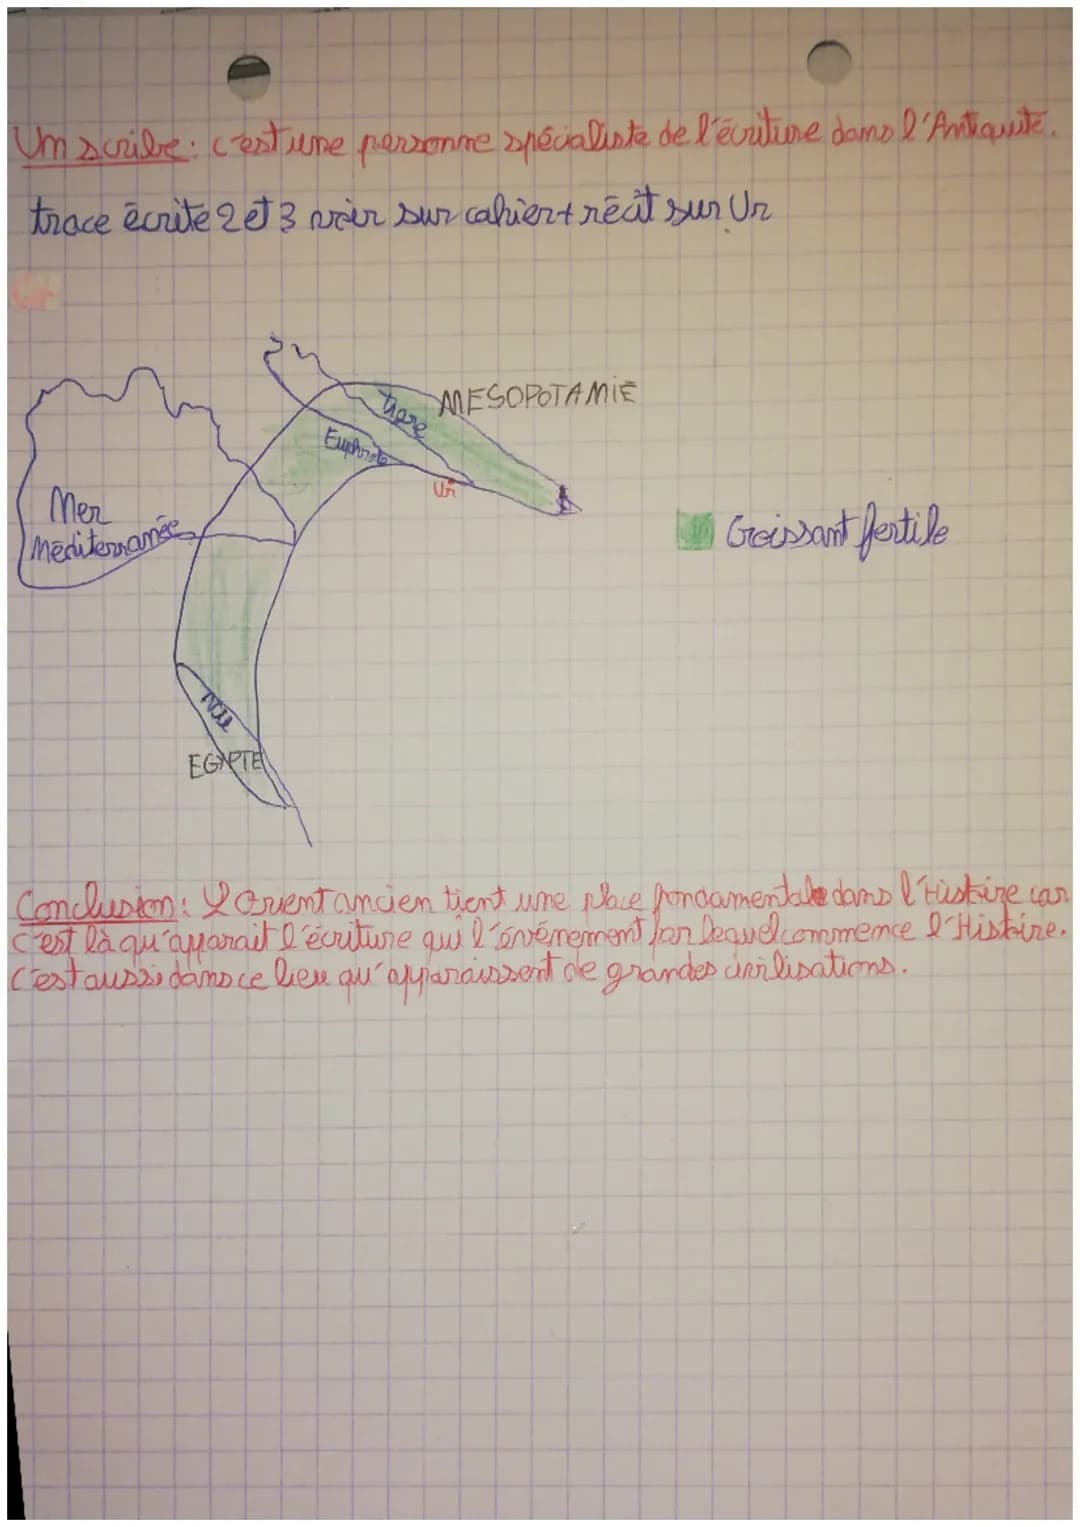 Un scribe : c'est une personne spécialiste de l'écriture dans l'Antiquité.
trace écrite 2 et 3 voir sur cahier + récit sur Ur
MESOPOTAMIE
tigre
Euphrate
Ur
Mer
Méditerranée
Croissant fertile
Nil
EGYPTE
Conclusion : L'Orient ancien tient une place fondamentale dans l'Histoire car
c'est là qu'apparait l'écriture qui l'événement par lequel commence l'Histoire.
C'est aussi dans ce lieu qu'apparaissent de grandes civilisations.